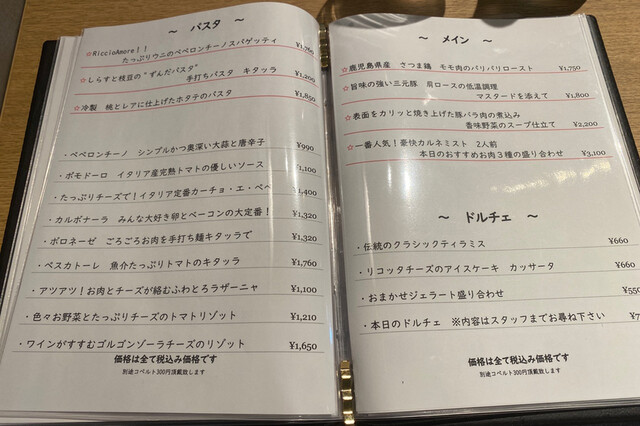 ～ パスタ ～
☆RiccioAmore！！
たっぷりウニのペペロンチーノスパゲッティ
☆しらすと枝豆の“ずんだパスタ”
手打ちパスタ キタッラ ¥1,200
☆冷製 桃とレアに仕上げたホタテのパスタ ¥1,850
・ペペロンチーノ シンプルかつ奥深い大蒜と唐辛子 ¥990
・ポモドーロ イタリア産完熟トマトの優しいソース ¥1,100
・たっぷりチーズで！イタリア定番カーチョ・エ・ペペ ¥1,400
・カルボナーラ みんな大好き卵とベーコンの大定番！ ¥1,320
・ボロネーゼ ごろごろお肉を手打ち麺キタッラで ¥1,320
・ペスカトーレ 魚介たっぷりトマトのキタッラ ¥1,760
・アツアツ！お肉とチーズが絡むふわとろラザーニャ ¥1,100
・色々お野菜とたっぷりチーズのトマトリゾット ¥1,210
・ワインがすすむゴルゴンゾーラチーズのリゾット ¥1,650
価格は全て税込み価格です
別途コペルト300円頂戴致します
～ メイン ～
☆鹿児島県産 さつま鶏 モモ肉のパリパリロースト ¥1,750
☆旨味の強い三元豚 肩ロースの低温調理
マスタードを添えて ¥1,800
☆表面をカリッと焼き上げた豚バラ肉の煮込み
香味野菜のスープ仕立て ¥2,200
☆一番人気！豪快カルネミスト 2人前
本日のおすすめお肉３種の盛り合わせ ¥3,100
～ ドルチェ ～
・伝統のクラシックティラミス ¥660
・リコッタチーズのアイスケーキ カッサータ ¥660
・おまかせジェラート盛り合わせ ¥550
・本日のドルチェ ※内容はスタッフまでお尋ね下さい
価格は全て税込み価格です
別途コペルト300円頂戴致します